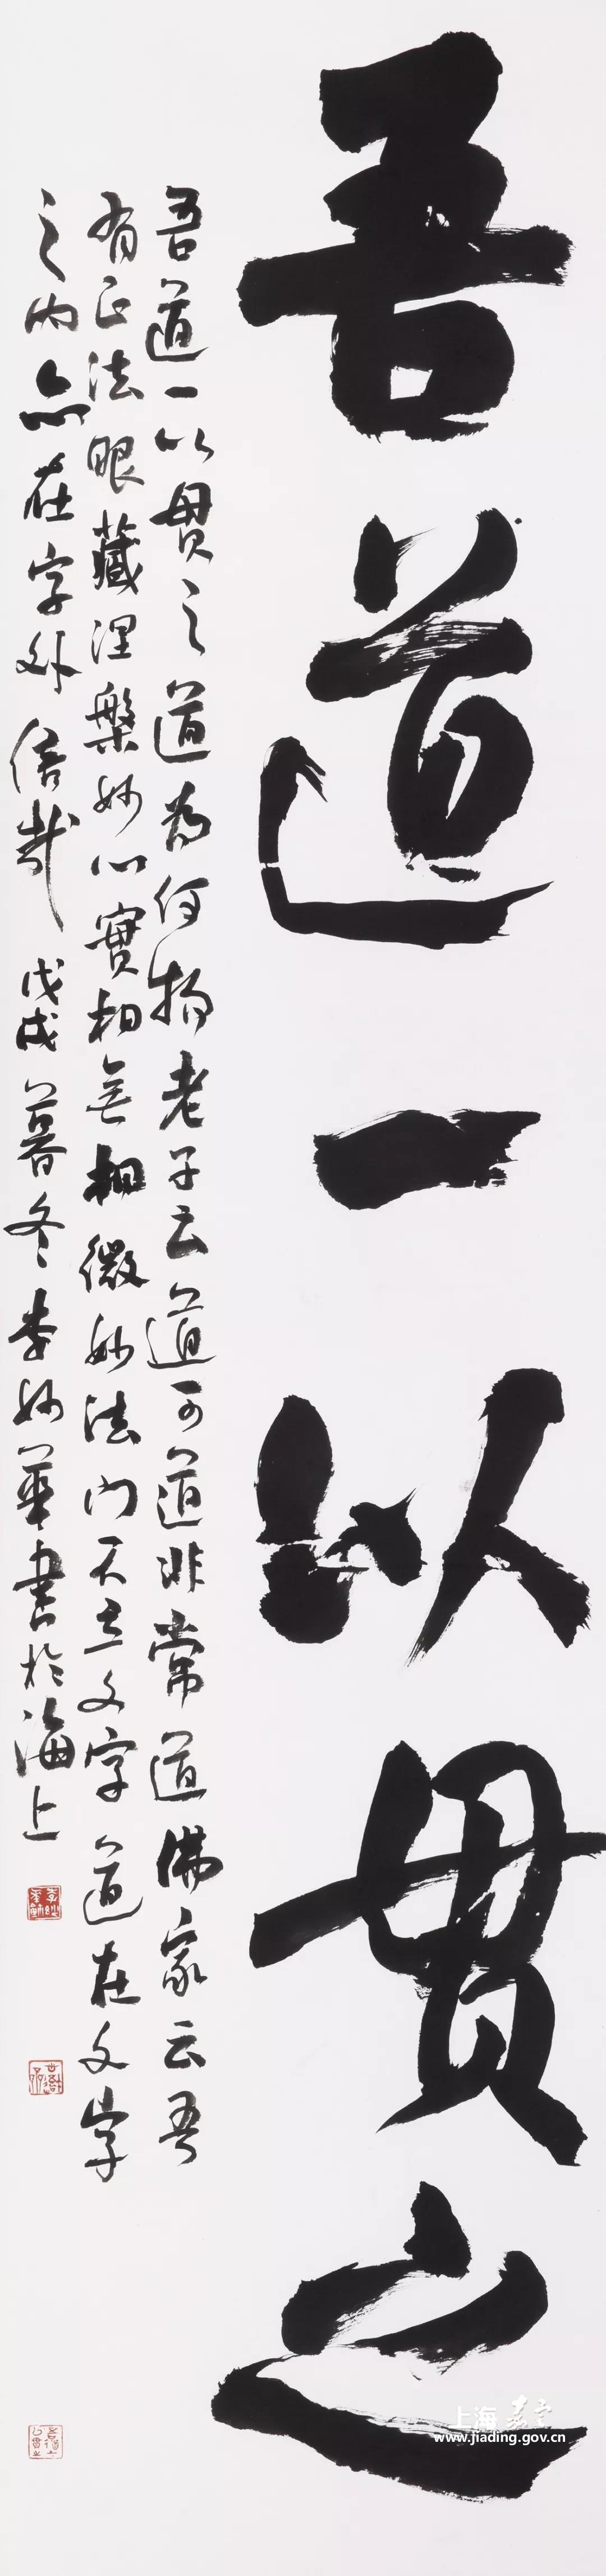 吾道一以贯之
吾道一以贯之道为何物老子云道可道非常道佛家云吾
有正法眼藏涅槃妙心實相無相微妙法门不立文字道在文字
之内亦在字外信哉戊戌暮冬李妙華書於海上
上海嘉定
www.jiading.gov.cn